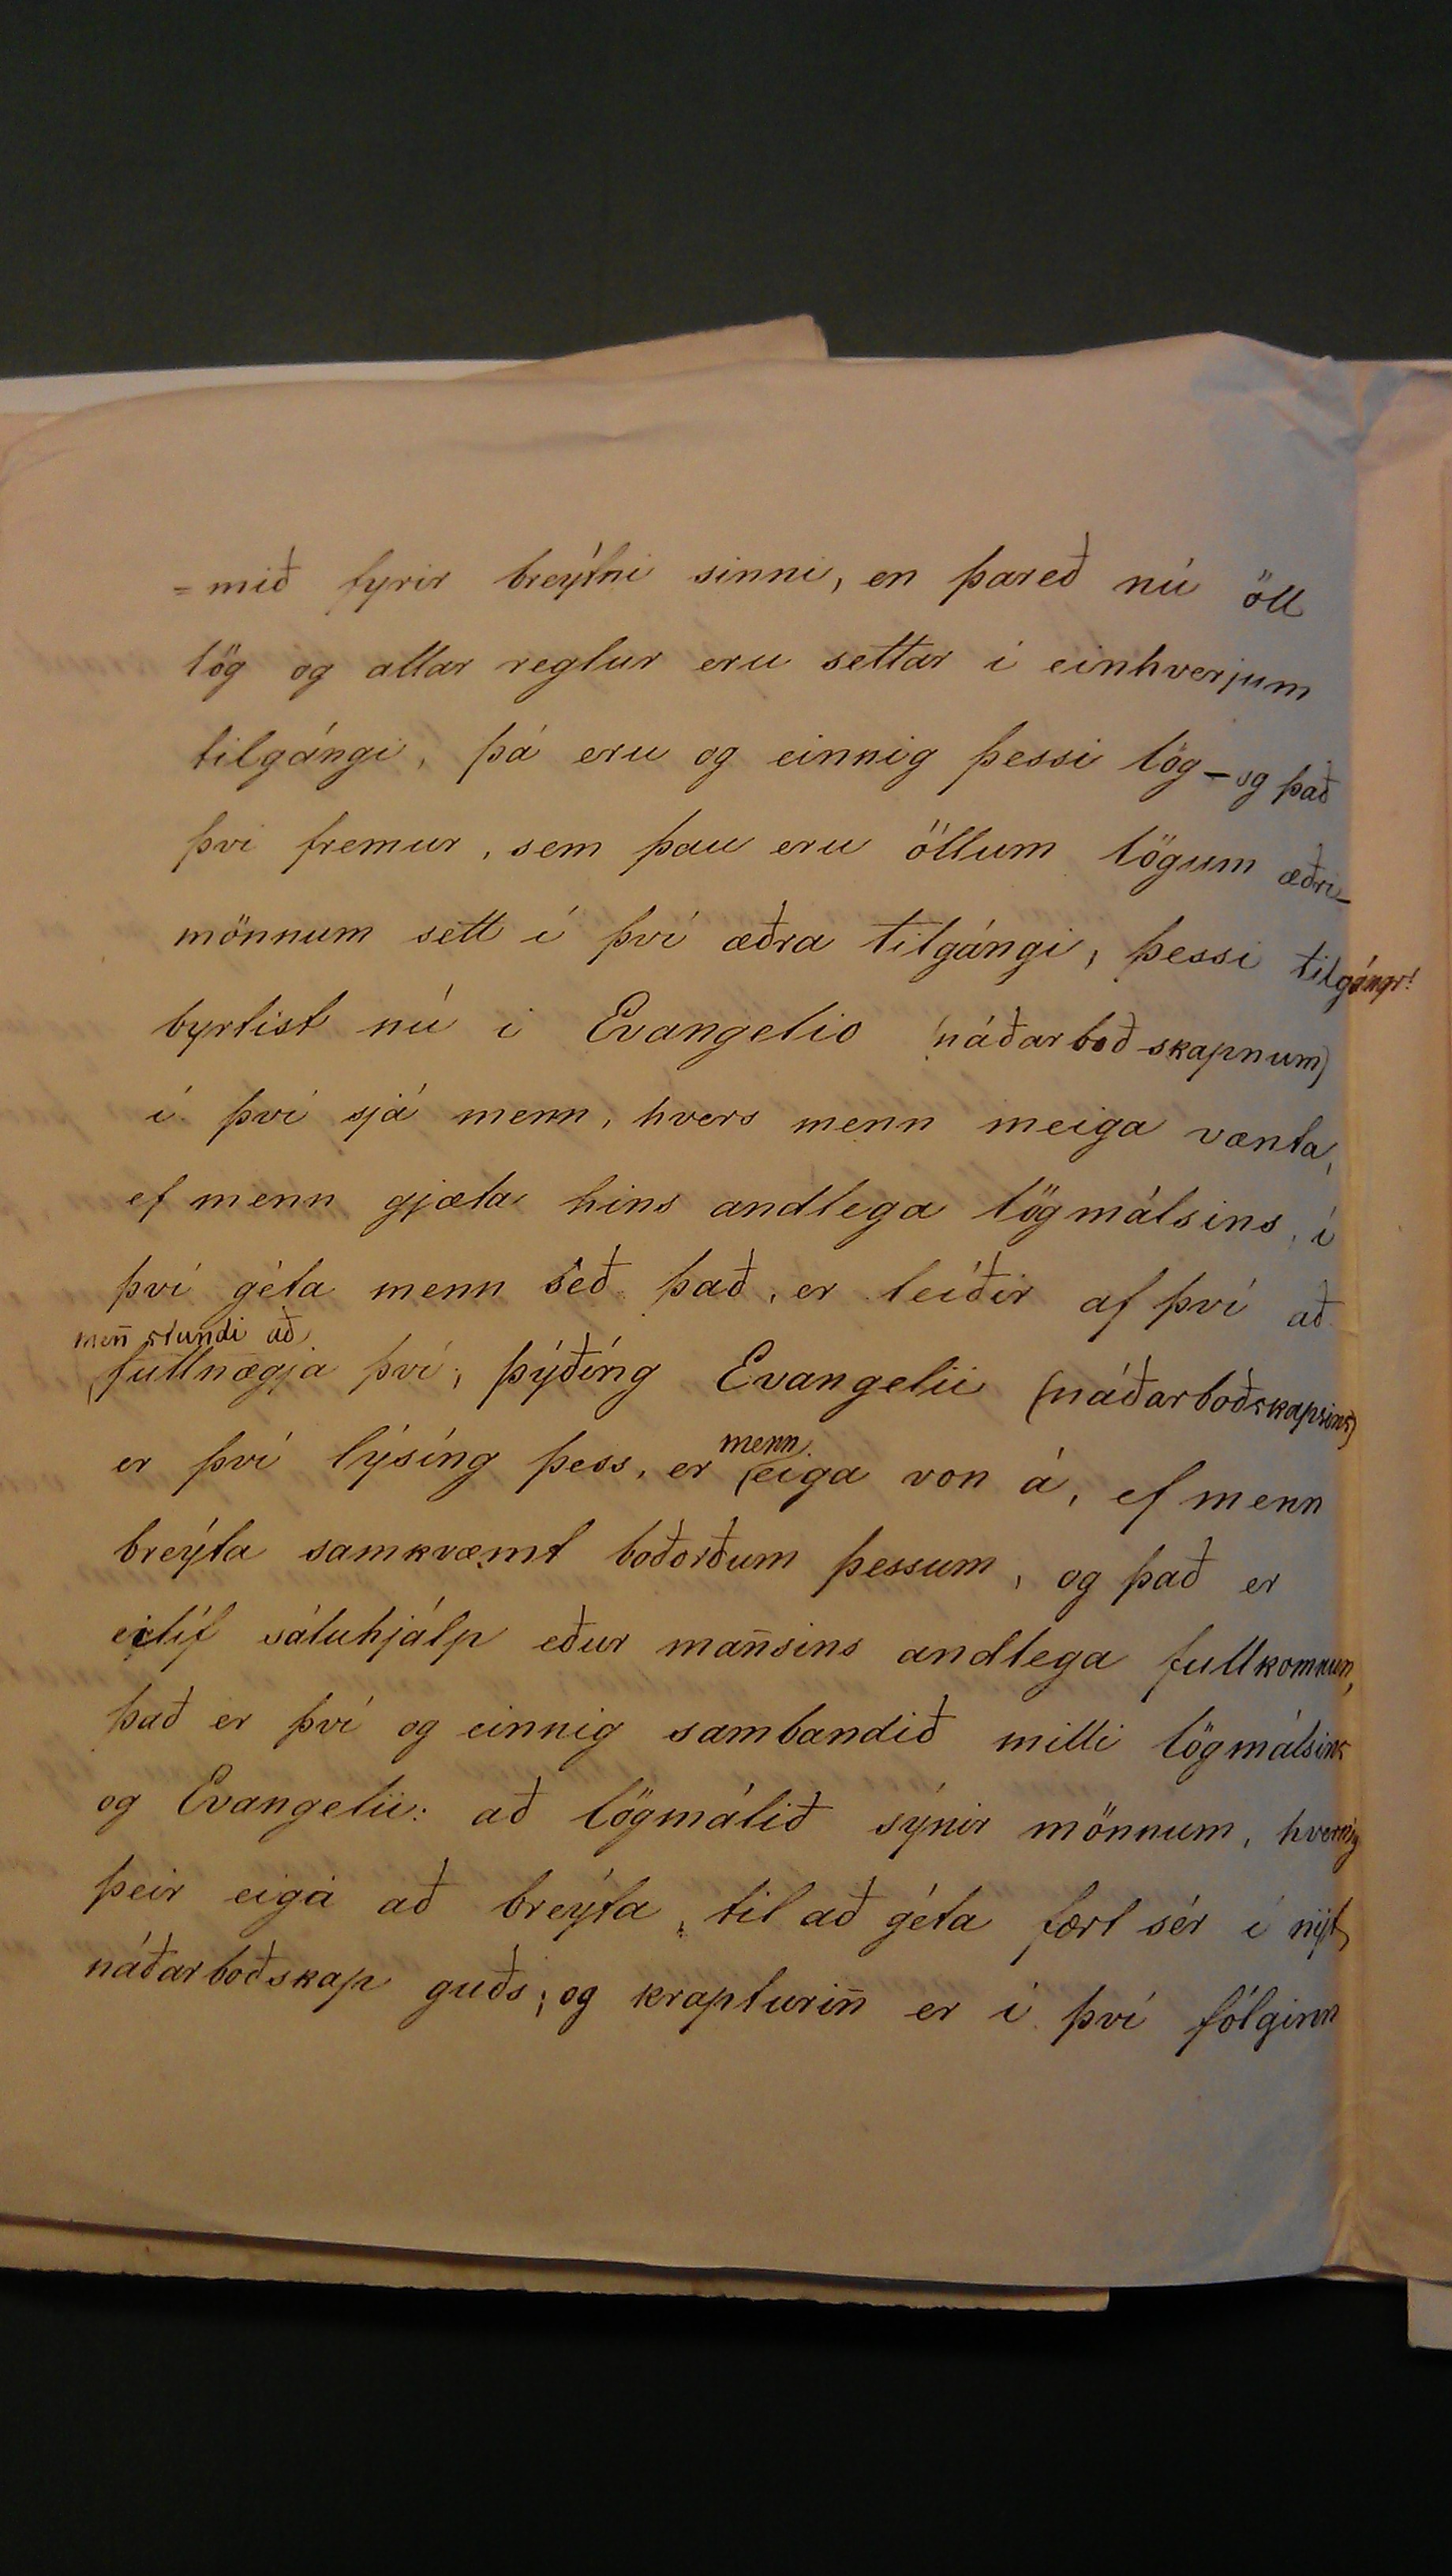 =mið fyrir breýtni sinni, en þareð nú öll
lög og allar reglur eru settar i einhverjum
tilgángi, þá eru og einnig þessi lög - og það
því fremur, sem þau eru öllum lögum æðri -
mönnum sett í því æðra tilgángi, þessi tilgángr
byrtist nú i Evangelio (náðarboðskapnum)
í því sjá menn, hvers menn meiga vænta,
ef menn gjæta hins andlega lögmálsins, í
því géta menn séð það, er leiðir af því að
men̄ stundi að
fullnægja því; þýðíng Evangelii (náðarboðskapsins)
er því lýsíng þess, er menn eiga von á, ef menn
breýta samkvæmt boðorðum þessum, og það er
eilíf sáluhjálp eður man̄sins andlega fullkomnun,
það er því og einnig sambandið milli lögmálsins
og Evangelii: að lögmálið sýnir mönnum, hvernig
þeir eiga að breýta, til að géta fært sér í nýt
náðarboðskap guðs; og krapturin̄ er i því fólginn